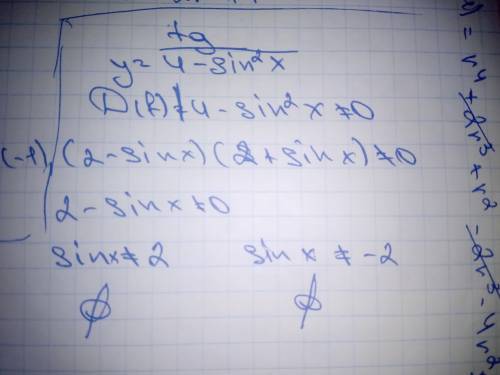 tg
y= 4-sin²x
D(f) 4-sin²x≠0
(2-sinx)(2+sinx)≠0
2-sinx≠0
sinx≠2 sin x ≠ -2
∅ ∅
= r⁴ + 2r³ + r² - 2r³ - 4r²